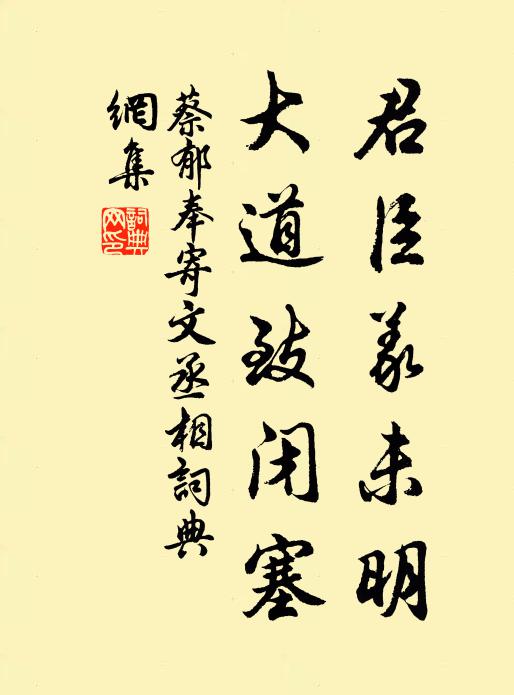 君臣義未明
大道致闭塞
蔡郁奉寄文丞相詞典
網集
詞典网印